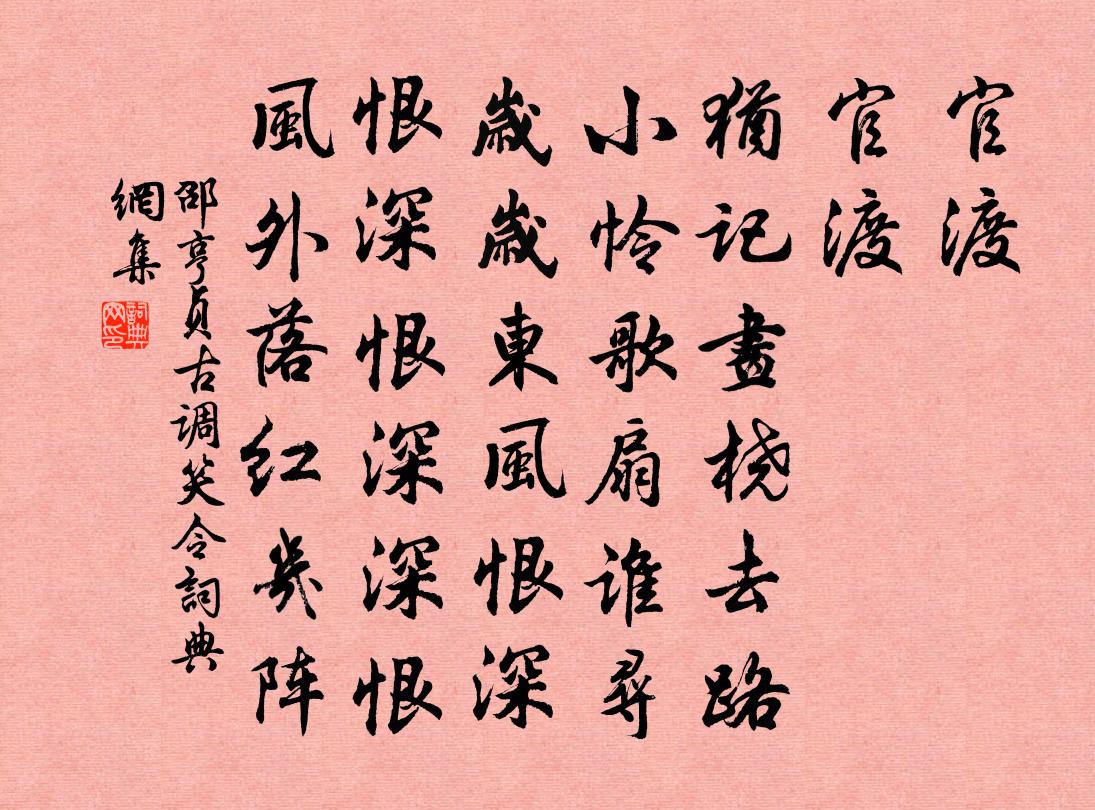 官渡
官渡
猶記畫桡去路
小怜歌扇誰尋
歲歲東風恨深
恨深恨深深恨
風外落红幾阵
邵亨貞古調笑令詞典
網集
詞典网印